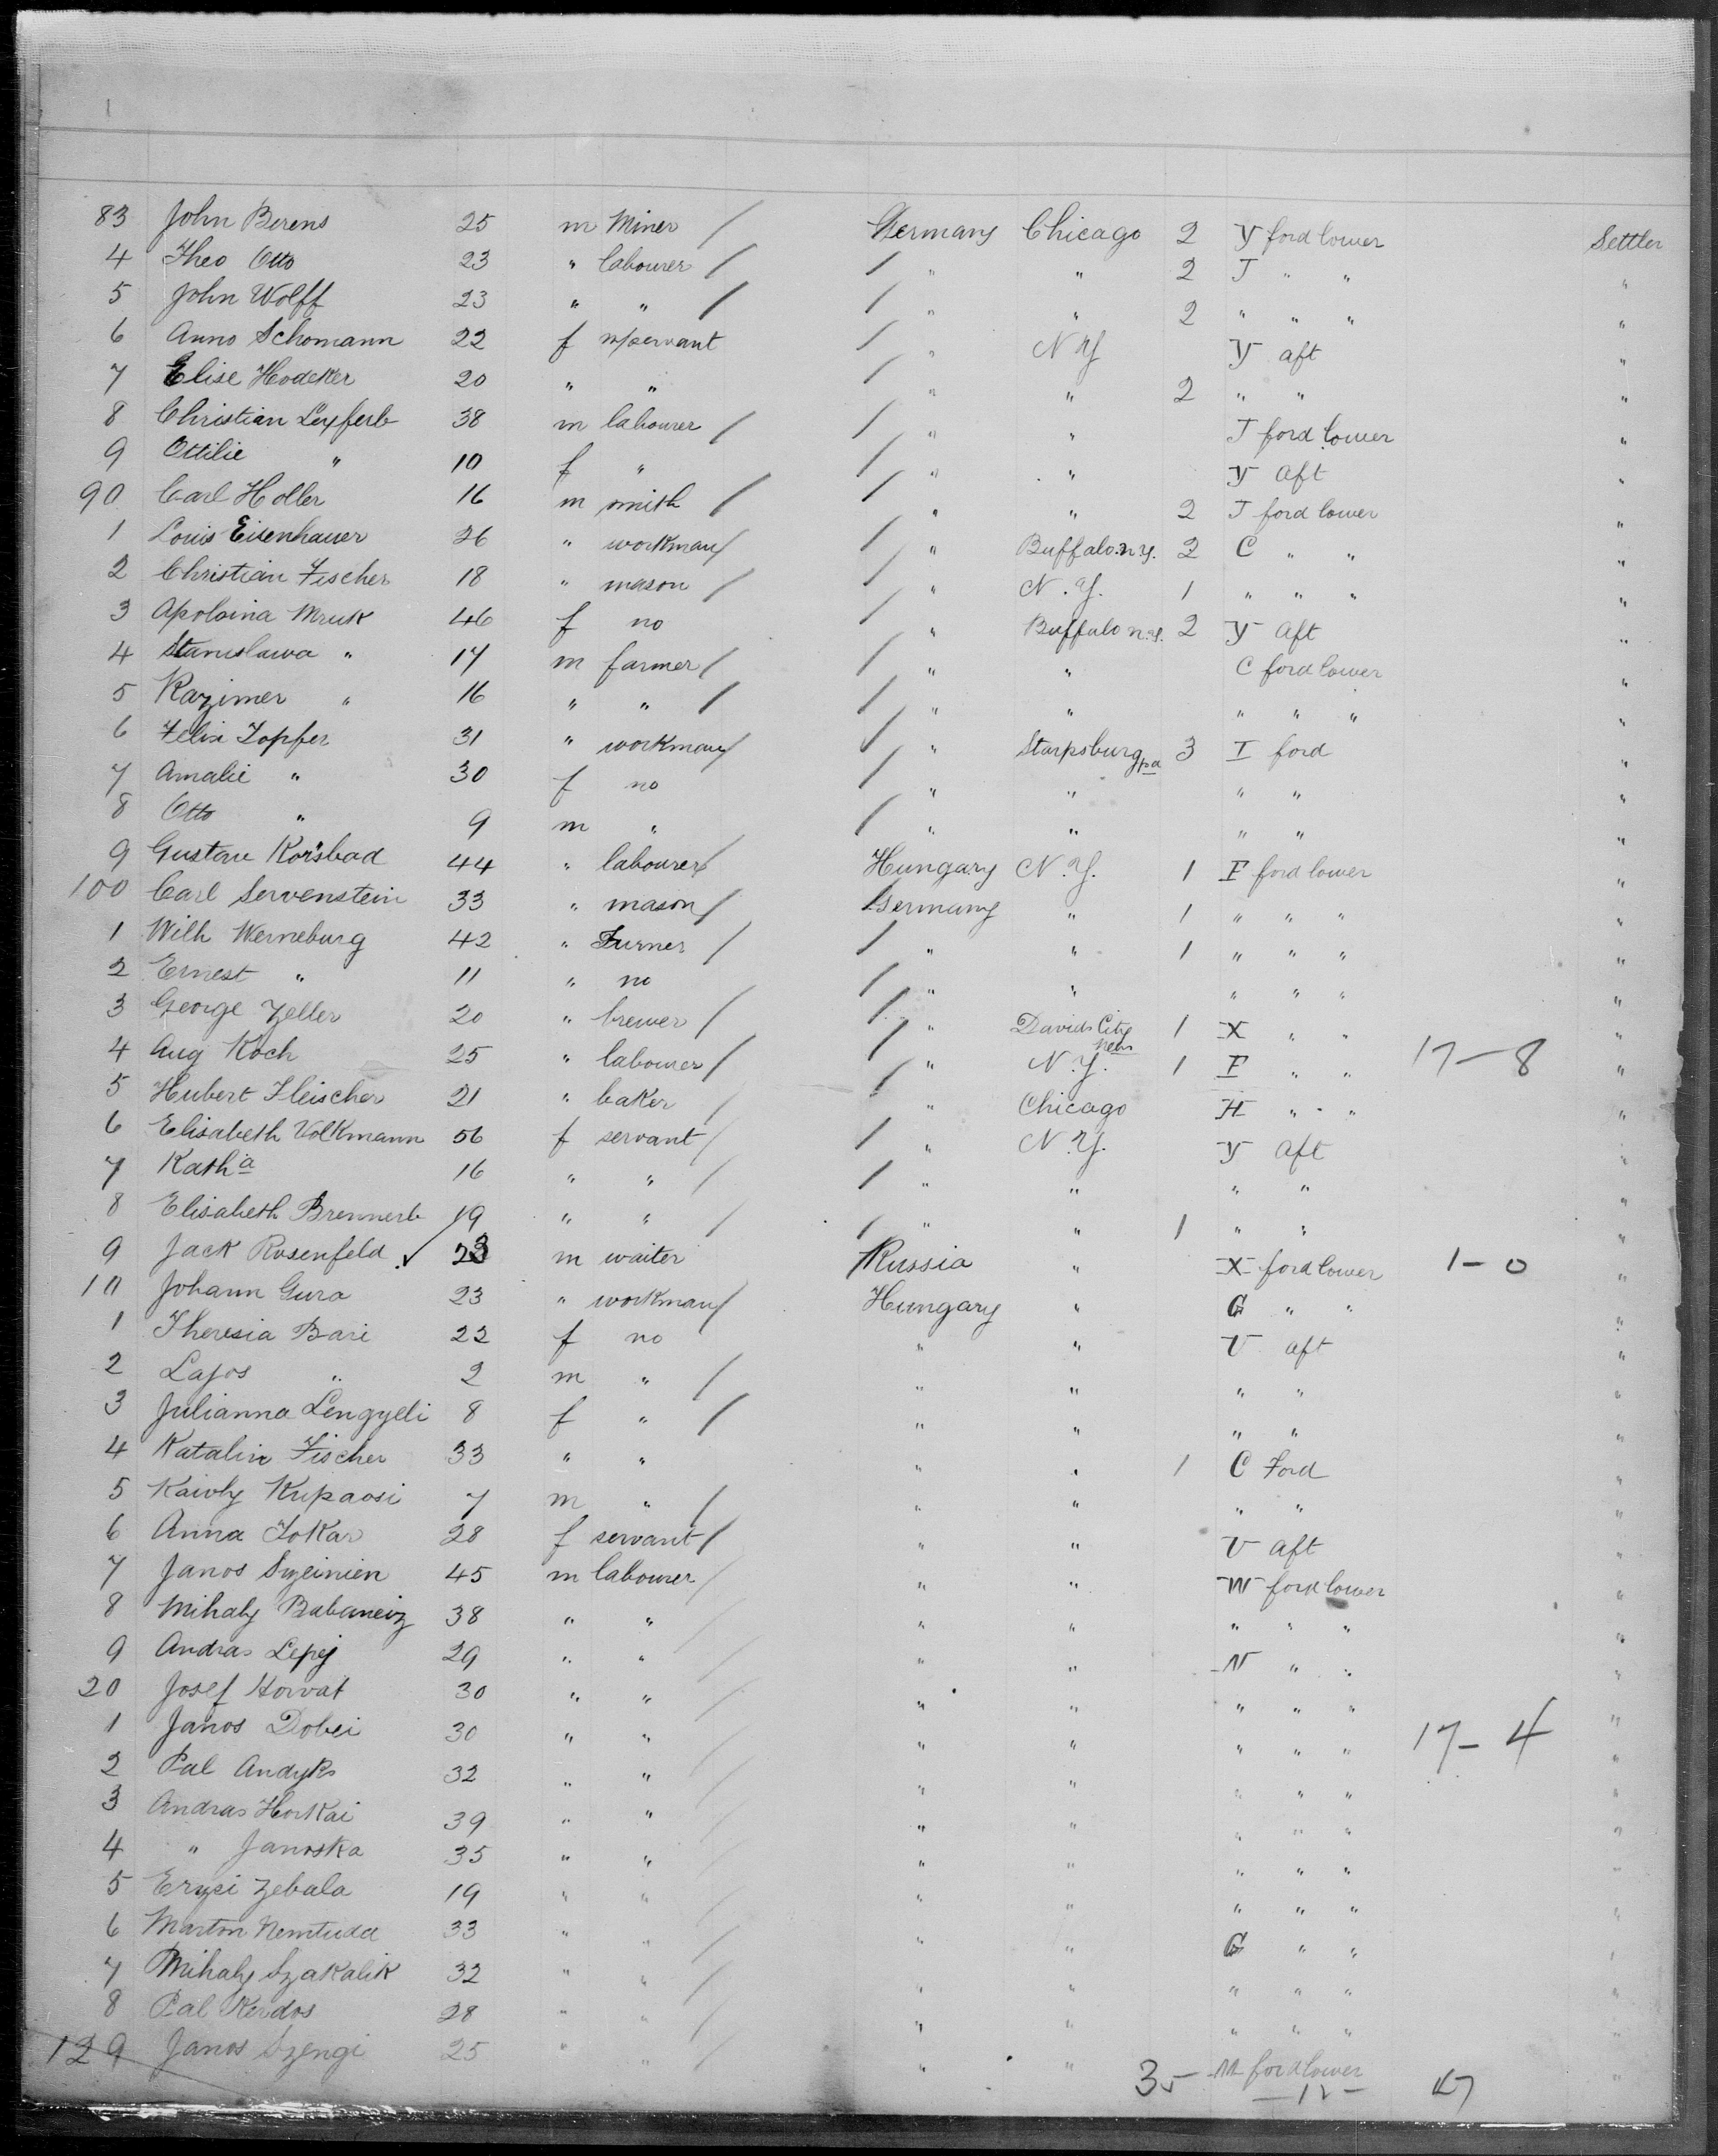 83 John Berens 25 m Miner / Germany Chicago 2 Y ford lower Settler
4 Theo Otto 23 " labourer / / " " 2 J " " "
5 John Wolff 23 " " / / " " 2 " " " "
6 Anno Schomann 22 f servant / " N Y Y aft "
7 Elise Hodeker 20 " " / " " 2 " " "
8 Christian 38 m labourer / / " " J ford lower "
9 Ottilie " 10 f " / " " Y aft "
90 Carl Holler 16 m smith / / " " 2 J ford lower "
1 Louis Eisenhauer 26 " workman / / " Buffalo n.y. 2 C " " "
2 Christian Fischer 18 " mason / / " N.Y. 1 " " " "
3 Apoloina Mruk 46 f no / " Buffalo n.y. 2 Y Aft "
4 Stanislawa " 17 m farmer / / " " C ford lower "
5 Kazimer " 16 " " / / " " " " " "
6 Felix Zopfer 31 " workman / / " Starpsburg pa 3 I ford "
7 Amalie " 30 f no / " " " " "
8 Otto " 9 m " / " " " " "
9 Gustav Korsbad 44 " labourer / Hungary N.Y. 1 F ford lower "
100 Carl Servenstein 33 " mason / Germany " 1 " " " "
1 Wilh Werneburg 42 " Turner / / " " 1 " " " "
2 Ernest " 11 " no / " " " " " "
3 George Zeller 20 " brewer / / " Davids City Neb 1 X " " "
4 Aug Koch 25 " labourer / / " N.Y. 1 F " " 17-8 "
5 Hubert Fleischer 21 " baker / / " Chicago H " " "
6 Elisabeth Volkmann 56 f servant / / " N.Y. Y aft "
7 Katha 16 " " / / " " " " "
8 Elisabeth 19 " " / / " " 1 " " "
9 Jack Rosenfeld 23 m waiter Russia " X ford lower 1-0 "
10 Johann Gura 23 " workman / Hungary " G " " "
1 Theresia Bari 22 f no " " V aft "
2 Lajos " 2 m " / " " " " "
3 Julianna Lengyeli 8 f " / " " " " "
4 Katalin Fischer 33 " " " " 1 C Ford "
5 Karoly Kupaosi 7 m " / " " " " "
6 Anna Tokar 28 f servant / " " V aft "
7 Janos Szeinien 45 m labourer / " " W ford lower "
8 Mihaly 38 " " / " " " " " "
9 Andras Lepej 29 " " / " " N " " "
20 Josef Horvat 30 " " / " " " " " "
1 Janos Dobei 30 " " / " " " " " 17-4 "
2 Pal Andyks 32 " " / " " " " " "
3 Andras Horkai 39 " " / " " " " " "
4 " Janoska 35 " " / " " " " " "
5 Erzsi Zebala 19 " " / " " " " " "
6 Marton Nemtuda 33 " " / " " G " " "
7 Mihaly Szakalik 32 " " / " " " " " "
8 Pal Kerdos 28 " " / " " " " " "
129 Janos Szengi 25 " " / " " M ford lower "
35 -12- 47